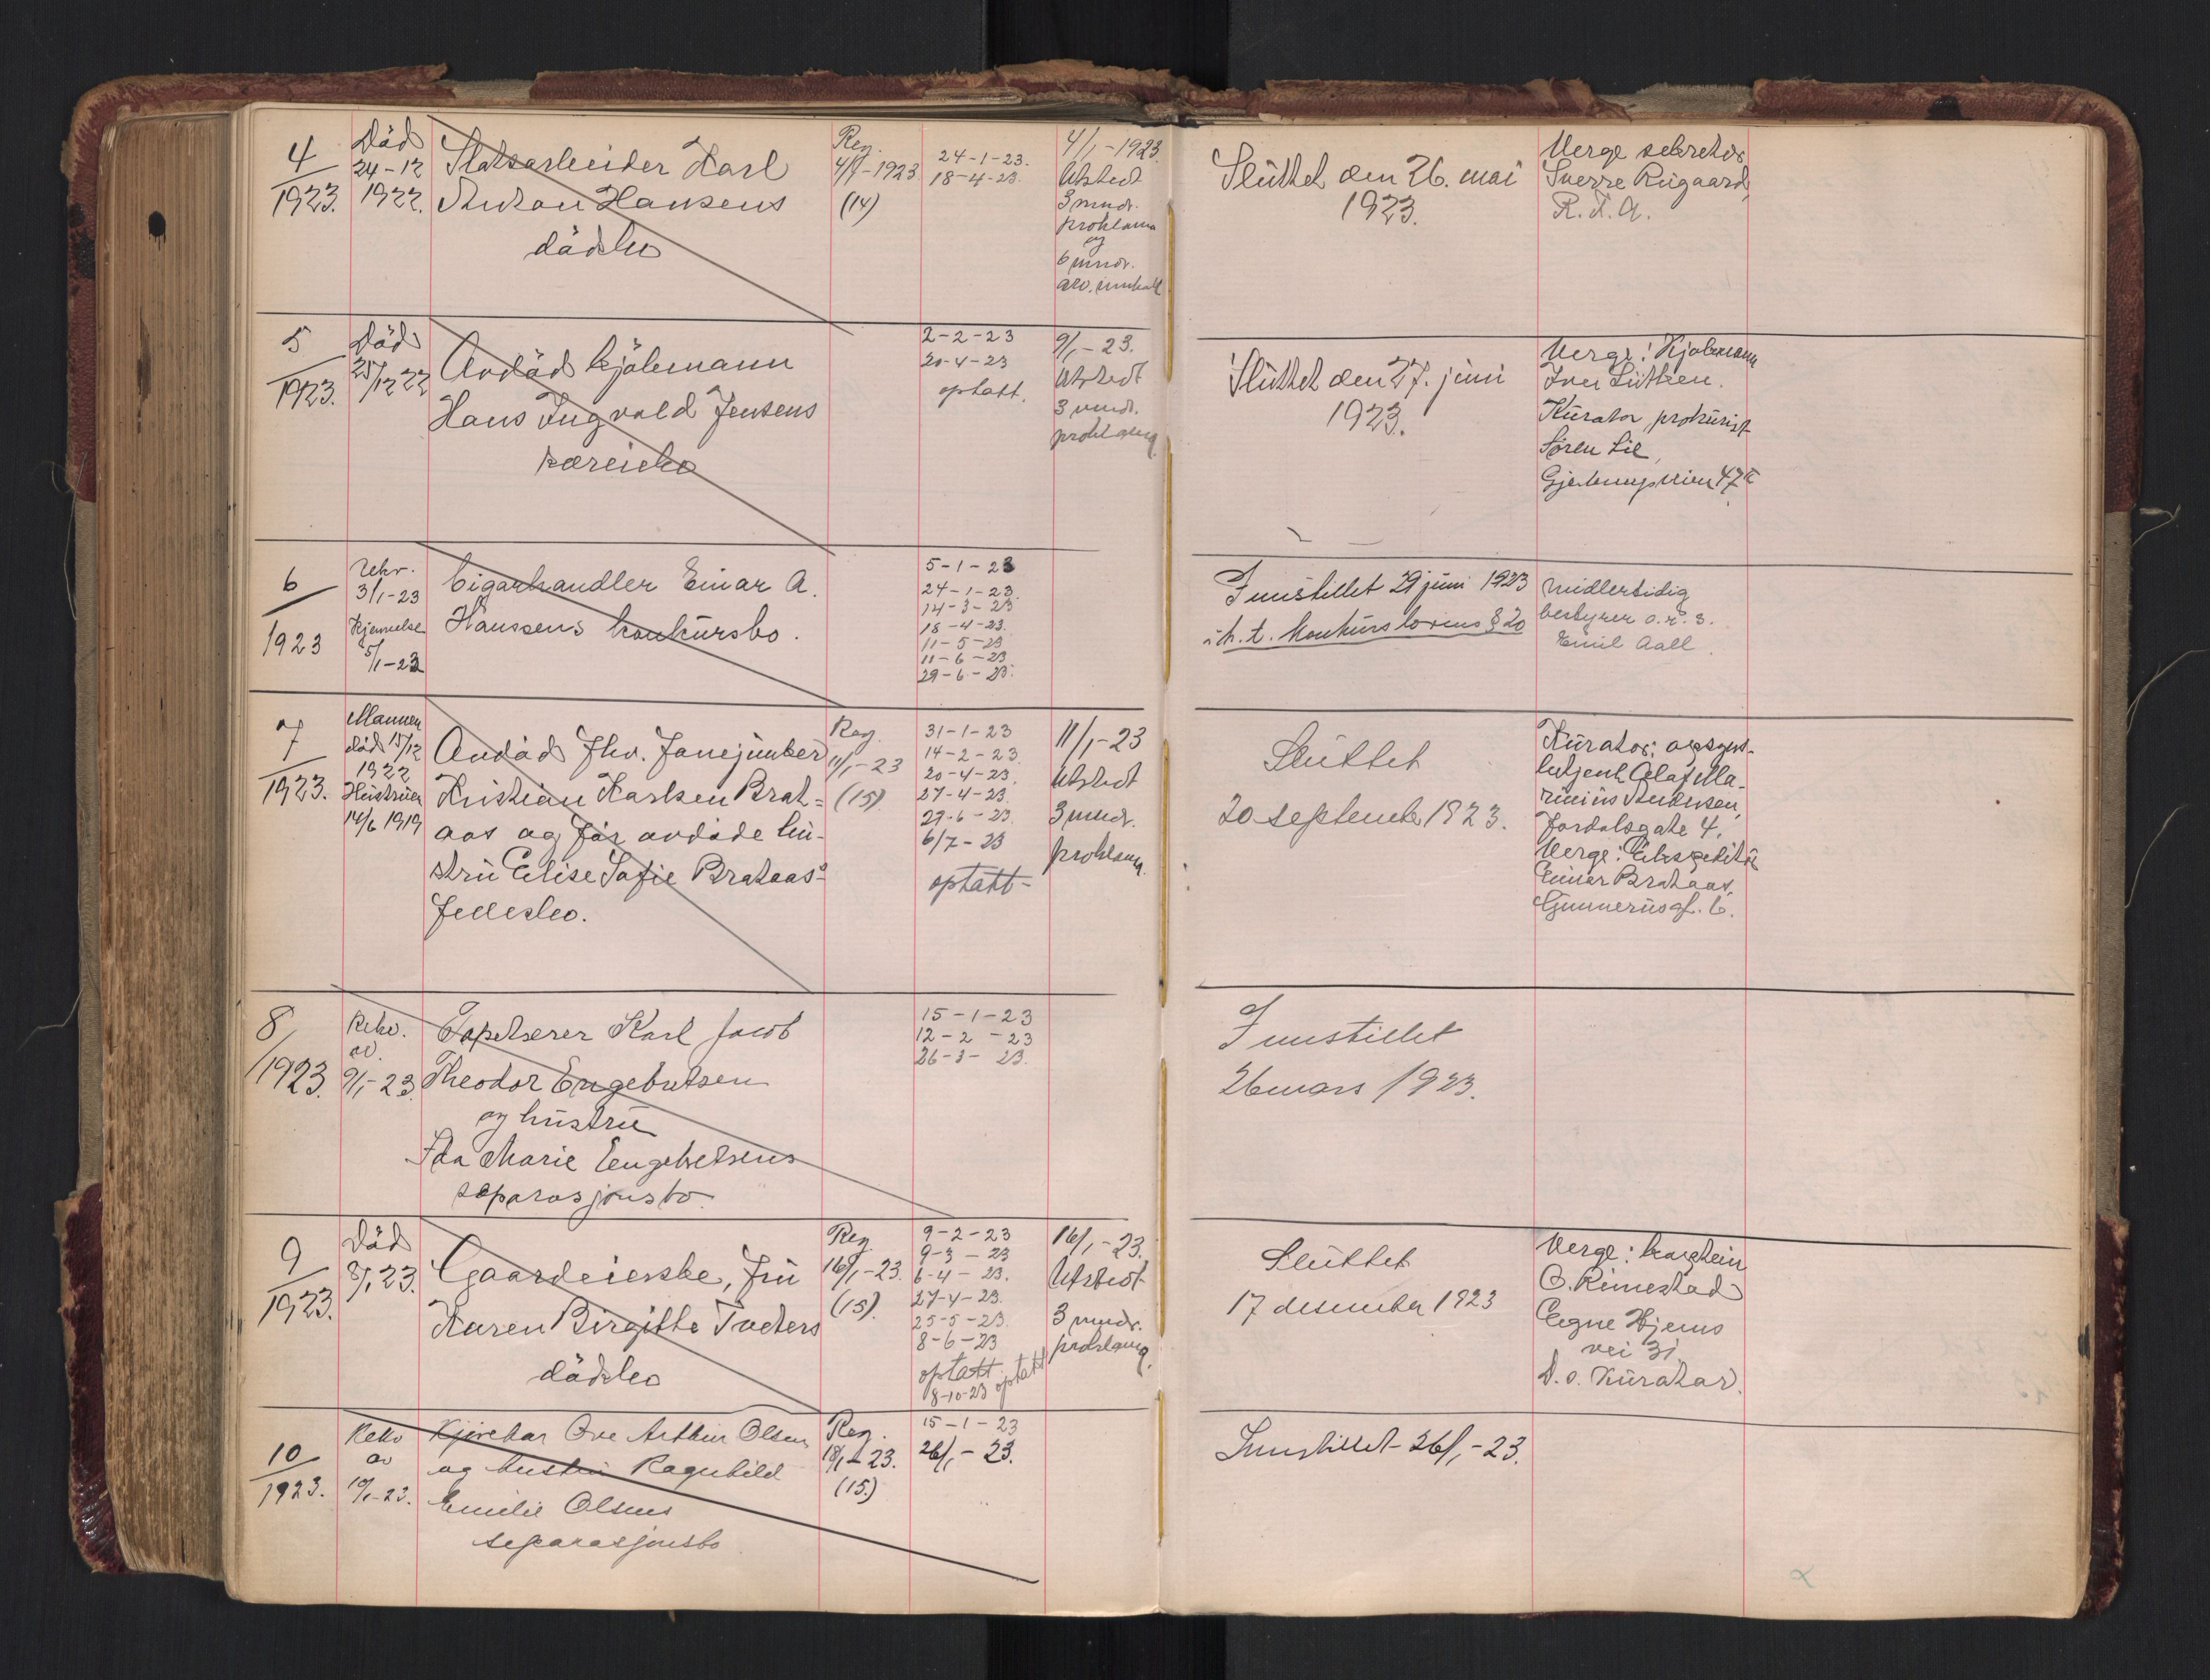 4
1923.
Död
24-12
1922.
Karl
Anton Hansens
dödsbo
Reg.
4/1-1923
(14)
24-1-23.
18-4-23.
4/1-1923
Utstedt
3 mndr.
proklama
og
6 mndr.
arv. innkall
Slüttet den 26. mai
1923.
Verge sekretær
Sverre Riigaard,
R. F. A.
5
1923.
Död
25/12 22
Avdöd kjöbmann
Hans Ingvald Jensens
særeiebo
2-2-23
20-4-23
optatt.
9/1-23.
Utstedt
3 mndr.
proklama
Slüttet den 27. jüni
1923.
Verge: Kjøbmann
Iver Lütken.
Kürator, prokürist
Søren Lie,
6
1923
Rekv.
3/1-23
Kjennelse
5/1-23
Cigarhandler Einar A.
Hanssens konkürsbo.
5-1-23
24-1-23.
14-3-23
18-4-23.
11-5-23
11-6-23.
29-6-23.
Innstillet 29 jüni 1923
i h. t. konkürslovens § 20
midlertidig
bestyrer o.r.s.
Emil Aall.
7
1923.
Mannen
död 15/12
1922
Hüstrüen
14/6 1919
Avdöd fhv. Janejünker
Kristian Karlsen Brat-
aas og før avdöde hü-
strü Elise Sofie Brataas's
fellesbo.
Reg.
11/1-23
(15).
31-1-23
14-2-23.
20-4-23.
27-4-23.
27-6-23.
6/7-23
optatt-
11/1-23
Utstedt
3 mndr.
proklama.
Slüttet
20 september 1923.
Kürator: opsyns-
betjent Olaf Ma-
rinius Andersen,
Jordalsgate 4.
Verge: Ekspeditør
Einar Brataas,
Gunnerüsgt. 6.
8
1923.
Rekv.
av.
9/1-23.
Tapetserer Karl Jacob
Theodor Engebretsen
og hüstrü
Ida Marie Engebretsens
separasjonsbo.
15-1-23
12-2-23
26-3-23.
Innstillet
26 mars 1923.
9
1923.
Död
8/1 23.
Gaardeierske, frü
Karen Birgitte Tveters
dödsbo
Reg
16/1-23.
(15).
9-2-23
9-3-23
6-4-23.
27-4-23.
25-5-23.
8-6-23
optatt.
8-10-23 optatt
16/1-23.
Utstedt
3 mndr.
proklama.
Slüttet
17 desember 1923
Verge:
O. Rimestad
Eegne Hjems
vei 31
D. o. Kürator.
10
1923.
Rekv
av
10/1-23.
Kjørekar Ove Arthur Olsen
og hustru Ragnhild
Emilie Olsens
separasjonsbo
Reg.
18/1-23.
(15.)
15-1-23
26/1-23.
Innstillet 26/1-23.